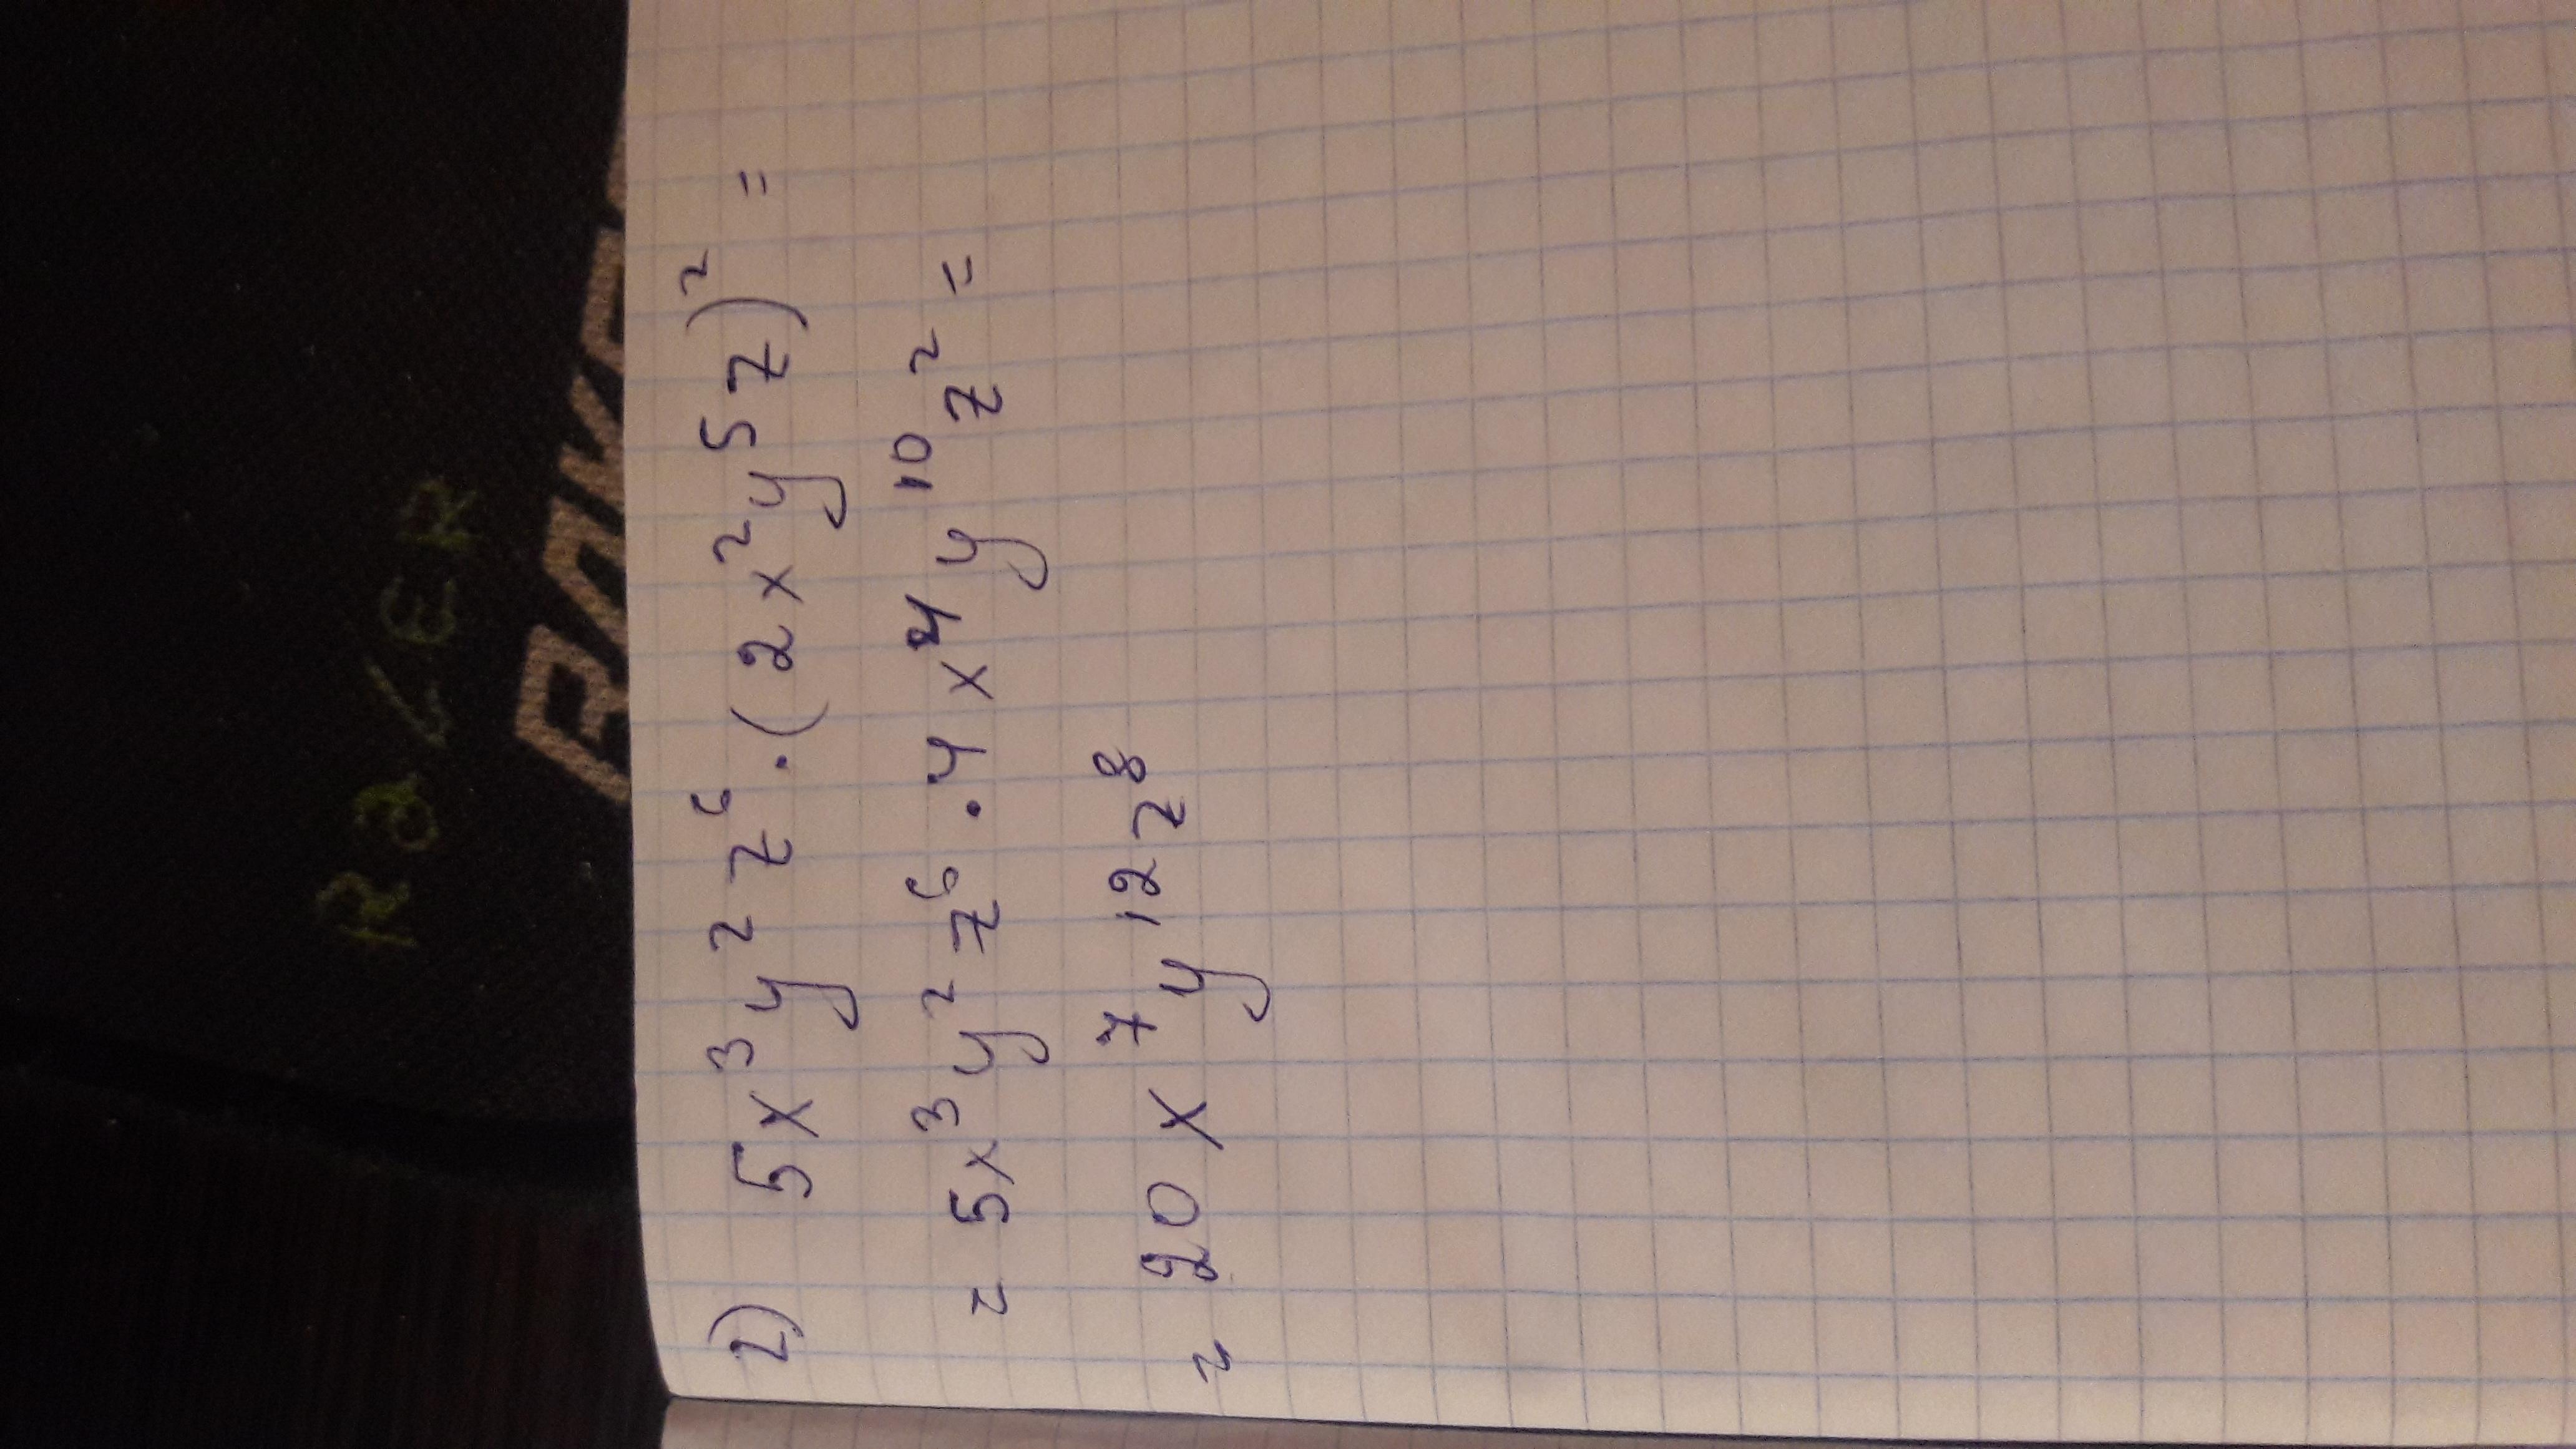 2) 5x³y²z⁶·(2x²y⁵z)² =
= 5x³y²z⁶·4x⁴y¹⁰z² =
= 20x⁷y¹²z⁸